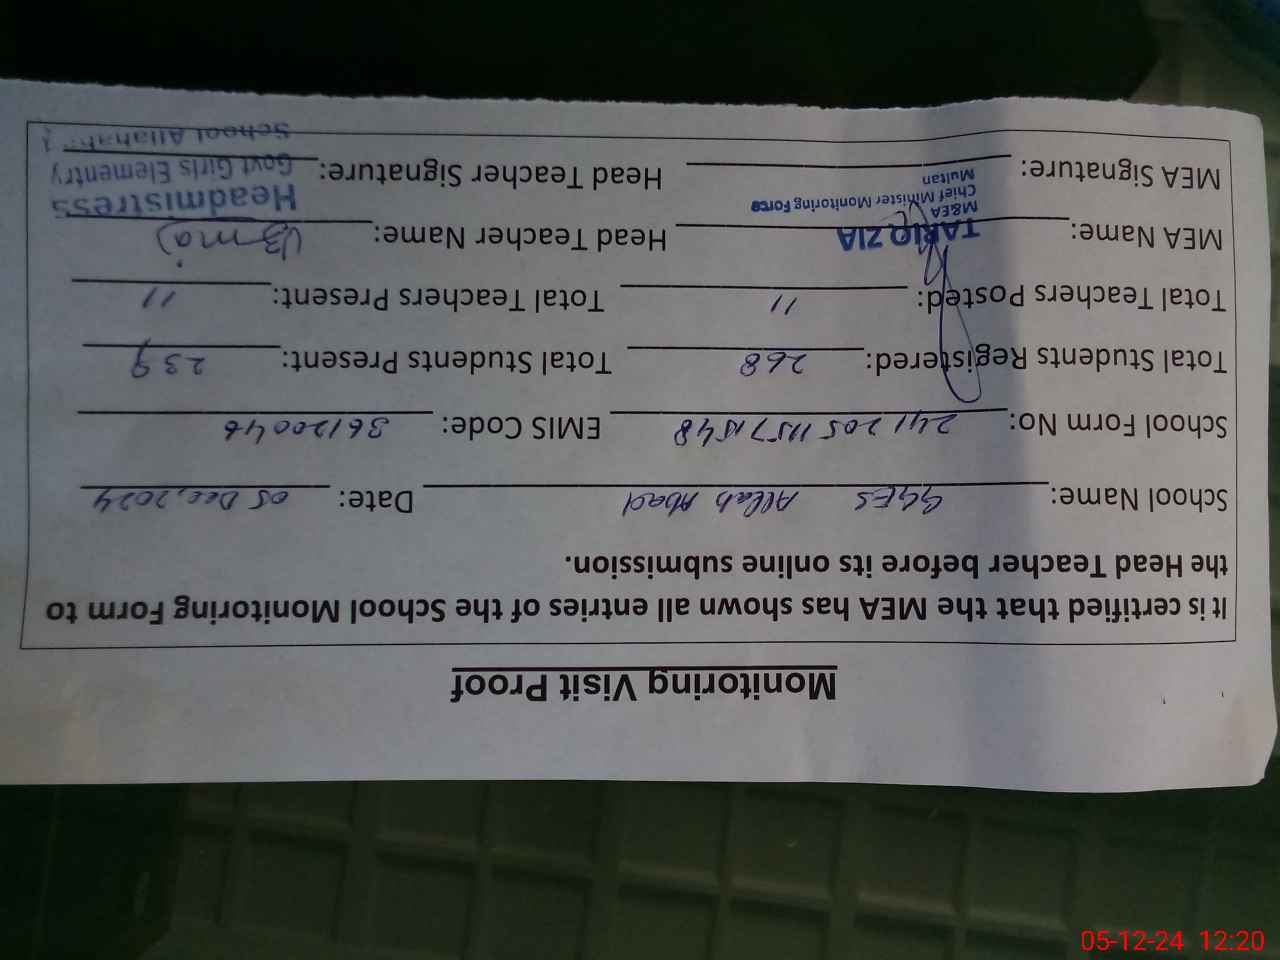 Monitoring Visit Proof
It is certified that the MEA has shown all entries of the School Monitoring Form to
the Head Teacher before its online submission.
School Name: GGES Allah Abad Date: 05 Dec, 2024
School Form No: EMIS Code: 36120046
Total Students Registered: 268 Total Students Present: 239
Total Teachers Posted: 11 Total Teachers Present: 11
MEA Name: TARIQ ZIA Head Teacher Name: Uzma
M&EA
Chief Minister Monitoring Force
Multan
Headmistress
MEA Signature: Head Teacher Signature: Govt Girls Elementry
School Allahabad
05-12-24 12:20